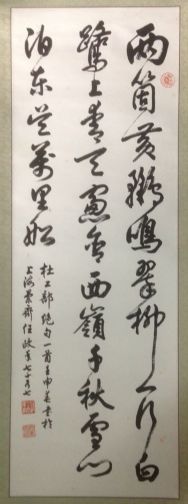 兩箇黃鸝鳴翠柳一行白
鷺上青天窗含西嶺千秋雪門
泊東吳萬里船
杜工部絕句一首壬申書於
上海蘭齋任政年七十七